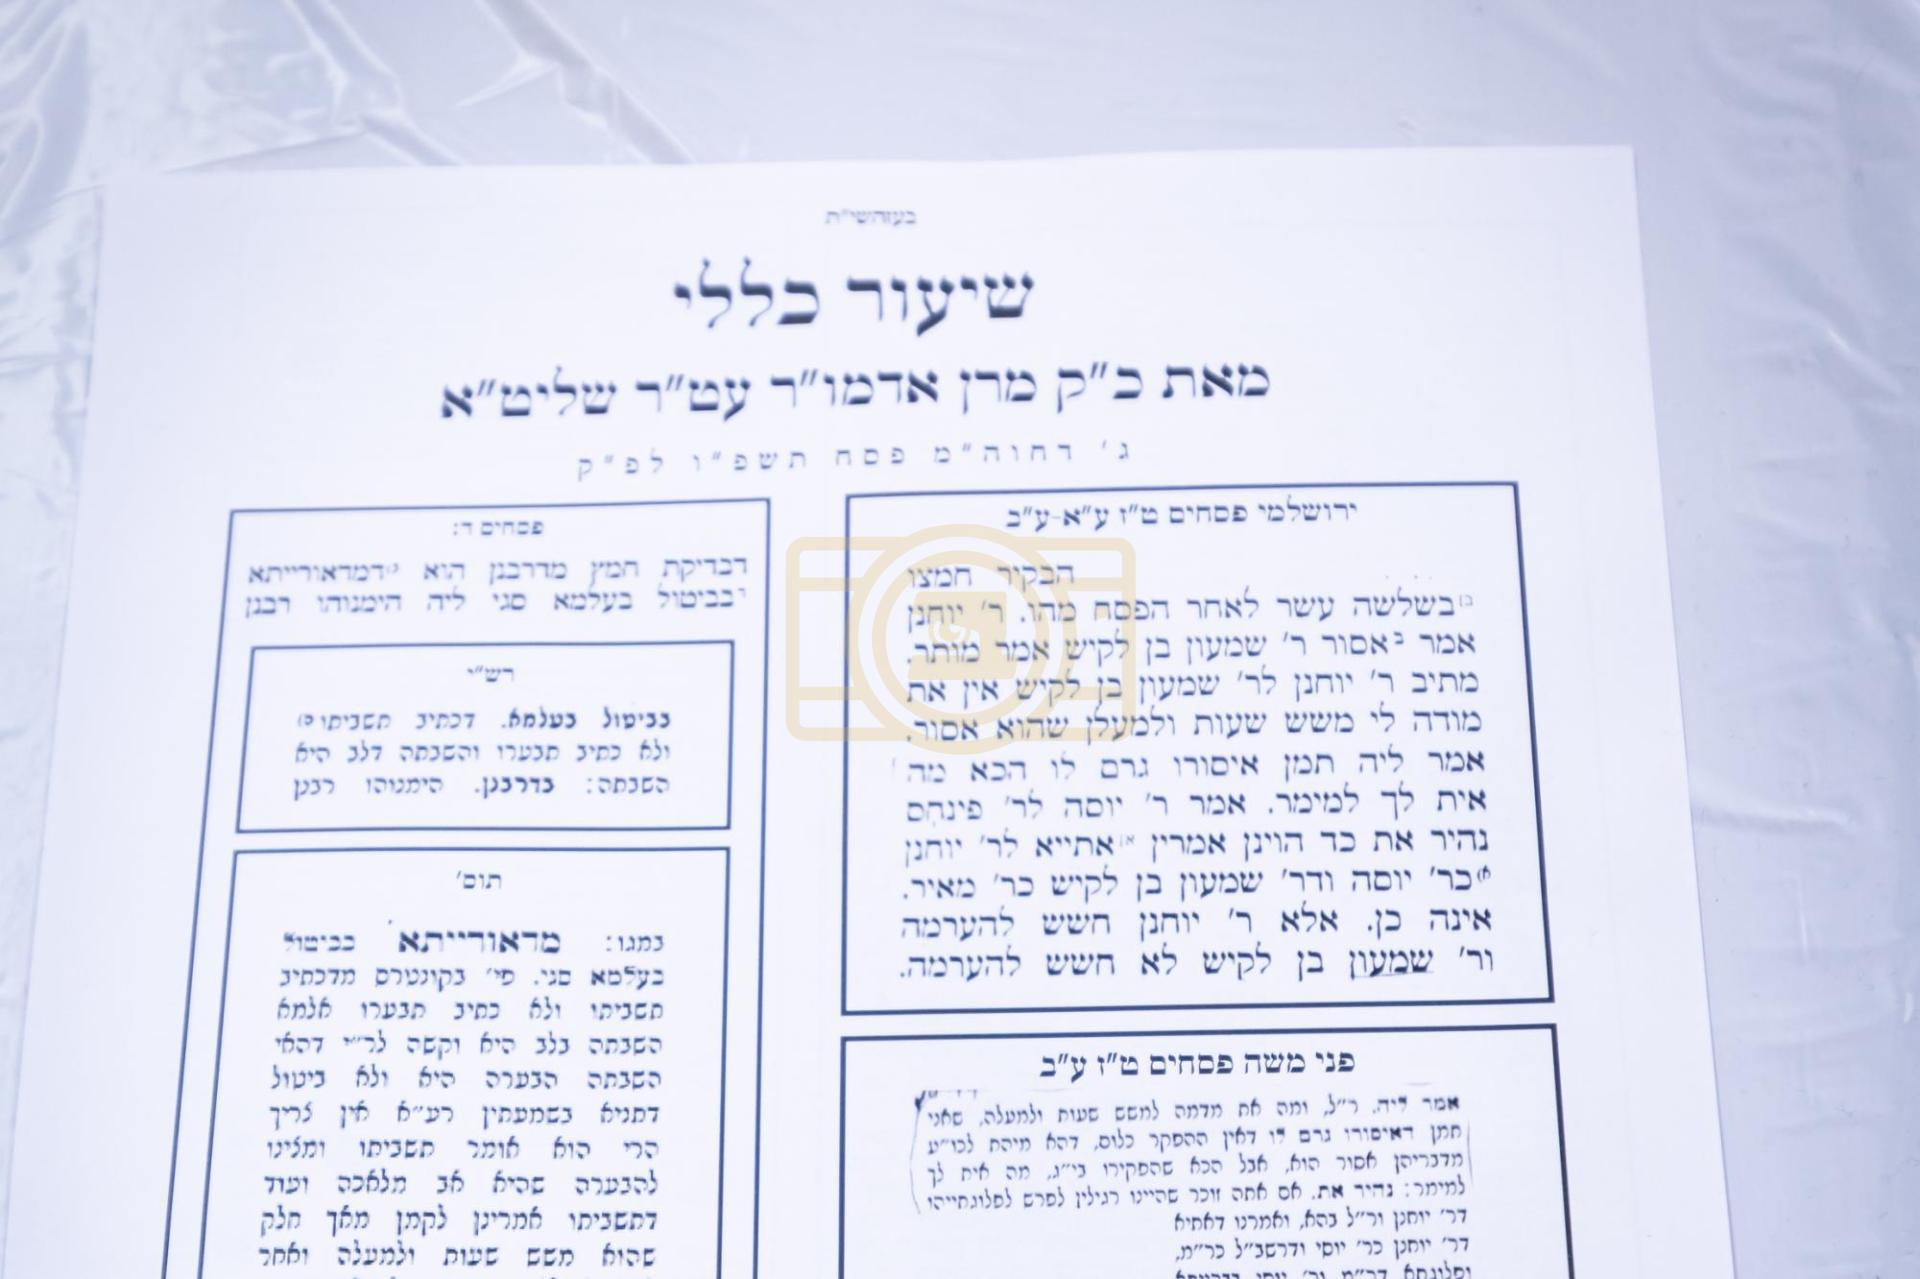 בעזהשי"ת
שיעור כללי
מאת כ"ק מרן אדמו"ר עט"ר שליט"א
ג' דחוה"מ פסח תשפ"ו לפ"ק
ירושלמי פסחים ט"ז ע"א-ע"ב
הבקיר חמצו
בשלשה עשר לאחר הפסח מהו. ר' יוחנן
אמר אסור ר' שמעון בן לקיש אמר מותר.
מתיב ר' יוחנן לר' שמעון בן לקיש אין את
מודה לי משש שעות ולמעלן שהוא אסור.
אמר ליה תמן איסורו גרם לו הכא מה
אית לך למימר. אמר ר' יוסה לר' פינחס
נהיר את כד הוינן אמרין אתייא לר' יוחנן
כר' יוסה ודר' שמעון בן לקיש כר' מאיר.
אינה כן. אלא ר' יוחנן חשש להערמה
ור' שמעון בן לקיש לא חשש להערמה.
פני משה פסחים ט"ז ע"ב
אמר ליה. ר"ל, ומה את מדמה למשש שעות ולמעלה, שאני
תמן דאיסורו גרם לו דאין ההפקר כלום, דהא מיהת לכו"ע
מדבריהן אסור הוא, אבל הכא שהפקירו בי"ג, מה אית לך
למימר: נהיר את. אם אתה זוכר שהיינו רגילין לפרש לפלוגתייהו
דר' יוחנן ור"ל בהא, ואמרנו דאתיא
דר' יוחנן כר' יוסי ודרשב"ל כר"מ,
ופלוגתא דר"מ ור' יוסי
פסחים ד:
דבדיקת חמץ מדרבנן הוא דמדאורייתא
בביטול בעלמא סגי ליה הימנוהו רבנן
רש"י
בביטול בעלמא. דכתיב תשביתו
ולא כתיב תבערו והשבתה דלב היא
השבתה: בדרבנן. הימנוהו רבנן
תוס'
במגו: מדאורייתא בביטול
בעלמא סגי. פי' בקונטרס מדכתיב
תשביתו ולא כתיב תבערו אלמא
השבתה בלב היא וקשה לר"י דהאי
השבתה הבערה היא ולא ביטול
דתניא בשמעתין רע"א אין צריך
הרי הוא אומר תשביתו ומצינו
להבערה שהיא אב מלאכה ועוד
דתשביתו אמרינן לקמן מאך חלק
שהוא משש שעות ולמעלה ואחר